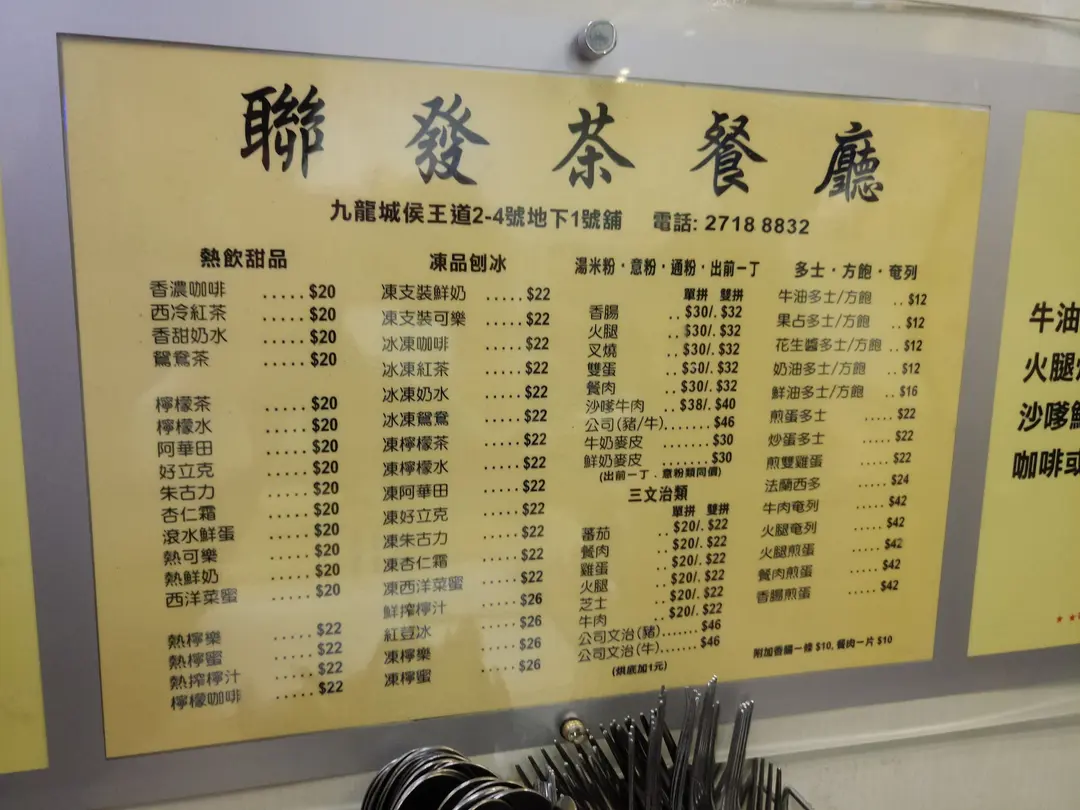 聯發茶餐廳
九龍城侯王道2-4號地下1號舖 電話: 2718 8832
熱飲甜品
香濃咖啡 ..... $20
西冷紅茶 ..... $20
香甜奶水 ..... $20
鴛鴦茶 ..... $20
檸檬茶 ..... $20
檸檬水 ..... $20
阿華田 ..... $20
好立克 ..... $20
朱古力 ..... $20
杏仁霜 ..... $20
滾水鮮蛋 ..... $20
熱可樂 ..... $20
熱鮮奶 ..... $20
西洋菜蜜 ..... $20
熱檸樂 ..... $22
熱檸蜜 ..... $22
熱搾檸汁 ..... $22
檸檬咖啡 ..... $22
凍品刨冰
凍支裝鮮奶 ..... $22
凍支裝可樂 ..... $22
冰凍咖啡 ..... $22
冰凍紅茶 ..... $22
冰凍奶水 ..... $22
冰凍鴛鴦 ..... $22
凍檸檬茶 ..... $22
凍檸檬水 ..... $22
凍阿華田 ..... $22
凍好立克 ..... $22
凍朱古力 ..... $22
凍杏仁霜 ..... $22
凍西洋菜蜜 ..... $22
鮮搾檸汁 ..... $26
紅荳冰 ..... $26
凍檸樂 ..... $26
凍檸蜜 ..... $26
湯米粉・意粉・通粉・出前一丁
單拼 雙拼
香腸 .. $30/. $32
火腿 .. $30/. $32
叉燒 .. $30/. $32
雙蛋 .. $30/. $32
餐肉 .. $30/. $32
沙嗲牛肉 .. $38/. $40
公司(豬/牛)....... $46
牛奶麥皮 ....... $30
鮮奶麥皮 ....... $30
(出前一丁．意粉類同價)
三文治類
單拼 雙拼
蕃茄 .. $20/. $22
餐肉 .. $20/. $22
雞蛋 .. $20/. $22
火腿 .. $20/. $22
芝士 .. $20/. $22
牛肉 .. $20/. $22
公司文治(豬)...... $46
公司文治(牛)...... $46
(烘底加1元)
多士・方飽・奄列
牛油多士/方飽 .. $12
果占多士/方飽 .. $12
花生醬多士/方飽 .. $12
奶油多士/方飽 .. $12
鮮油多士/方飽 .. $16
煎蛋多士 ..... $22
炒蛋多士 ..... $22
煎雙雞蛋 ..... $22
法蘭西多 ..... $24
牛肉奄列 ..... $42
火腿奄列 ..... $42
火腿煎蛋 ..... $42
餐肉煎蛋 ..... $42
香腸煎蛋 ..... $42
附加香腸一條 $10, 餐肉一片 $10
牛油
火腿
沙嗲
咖啡或